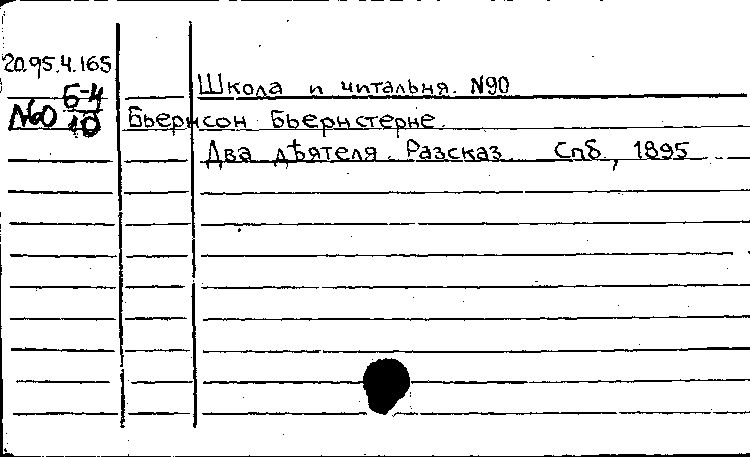 20.95.4.165
Школа и читальня. N90
N60 Б-4/10 Бьернсон Бьернстерне.
Два дѣятеля. Разсказ. Спб, 1895